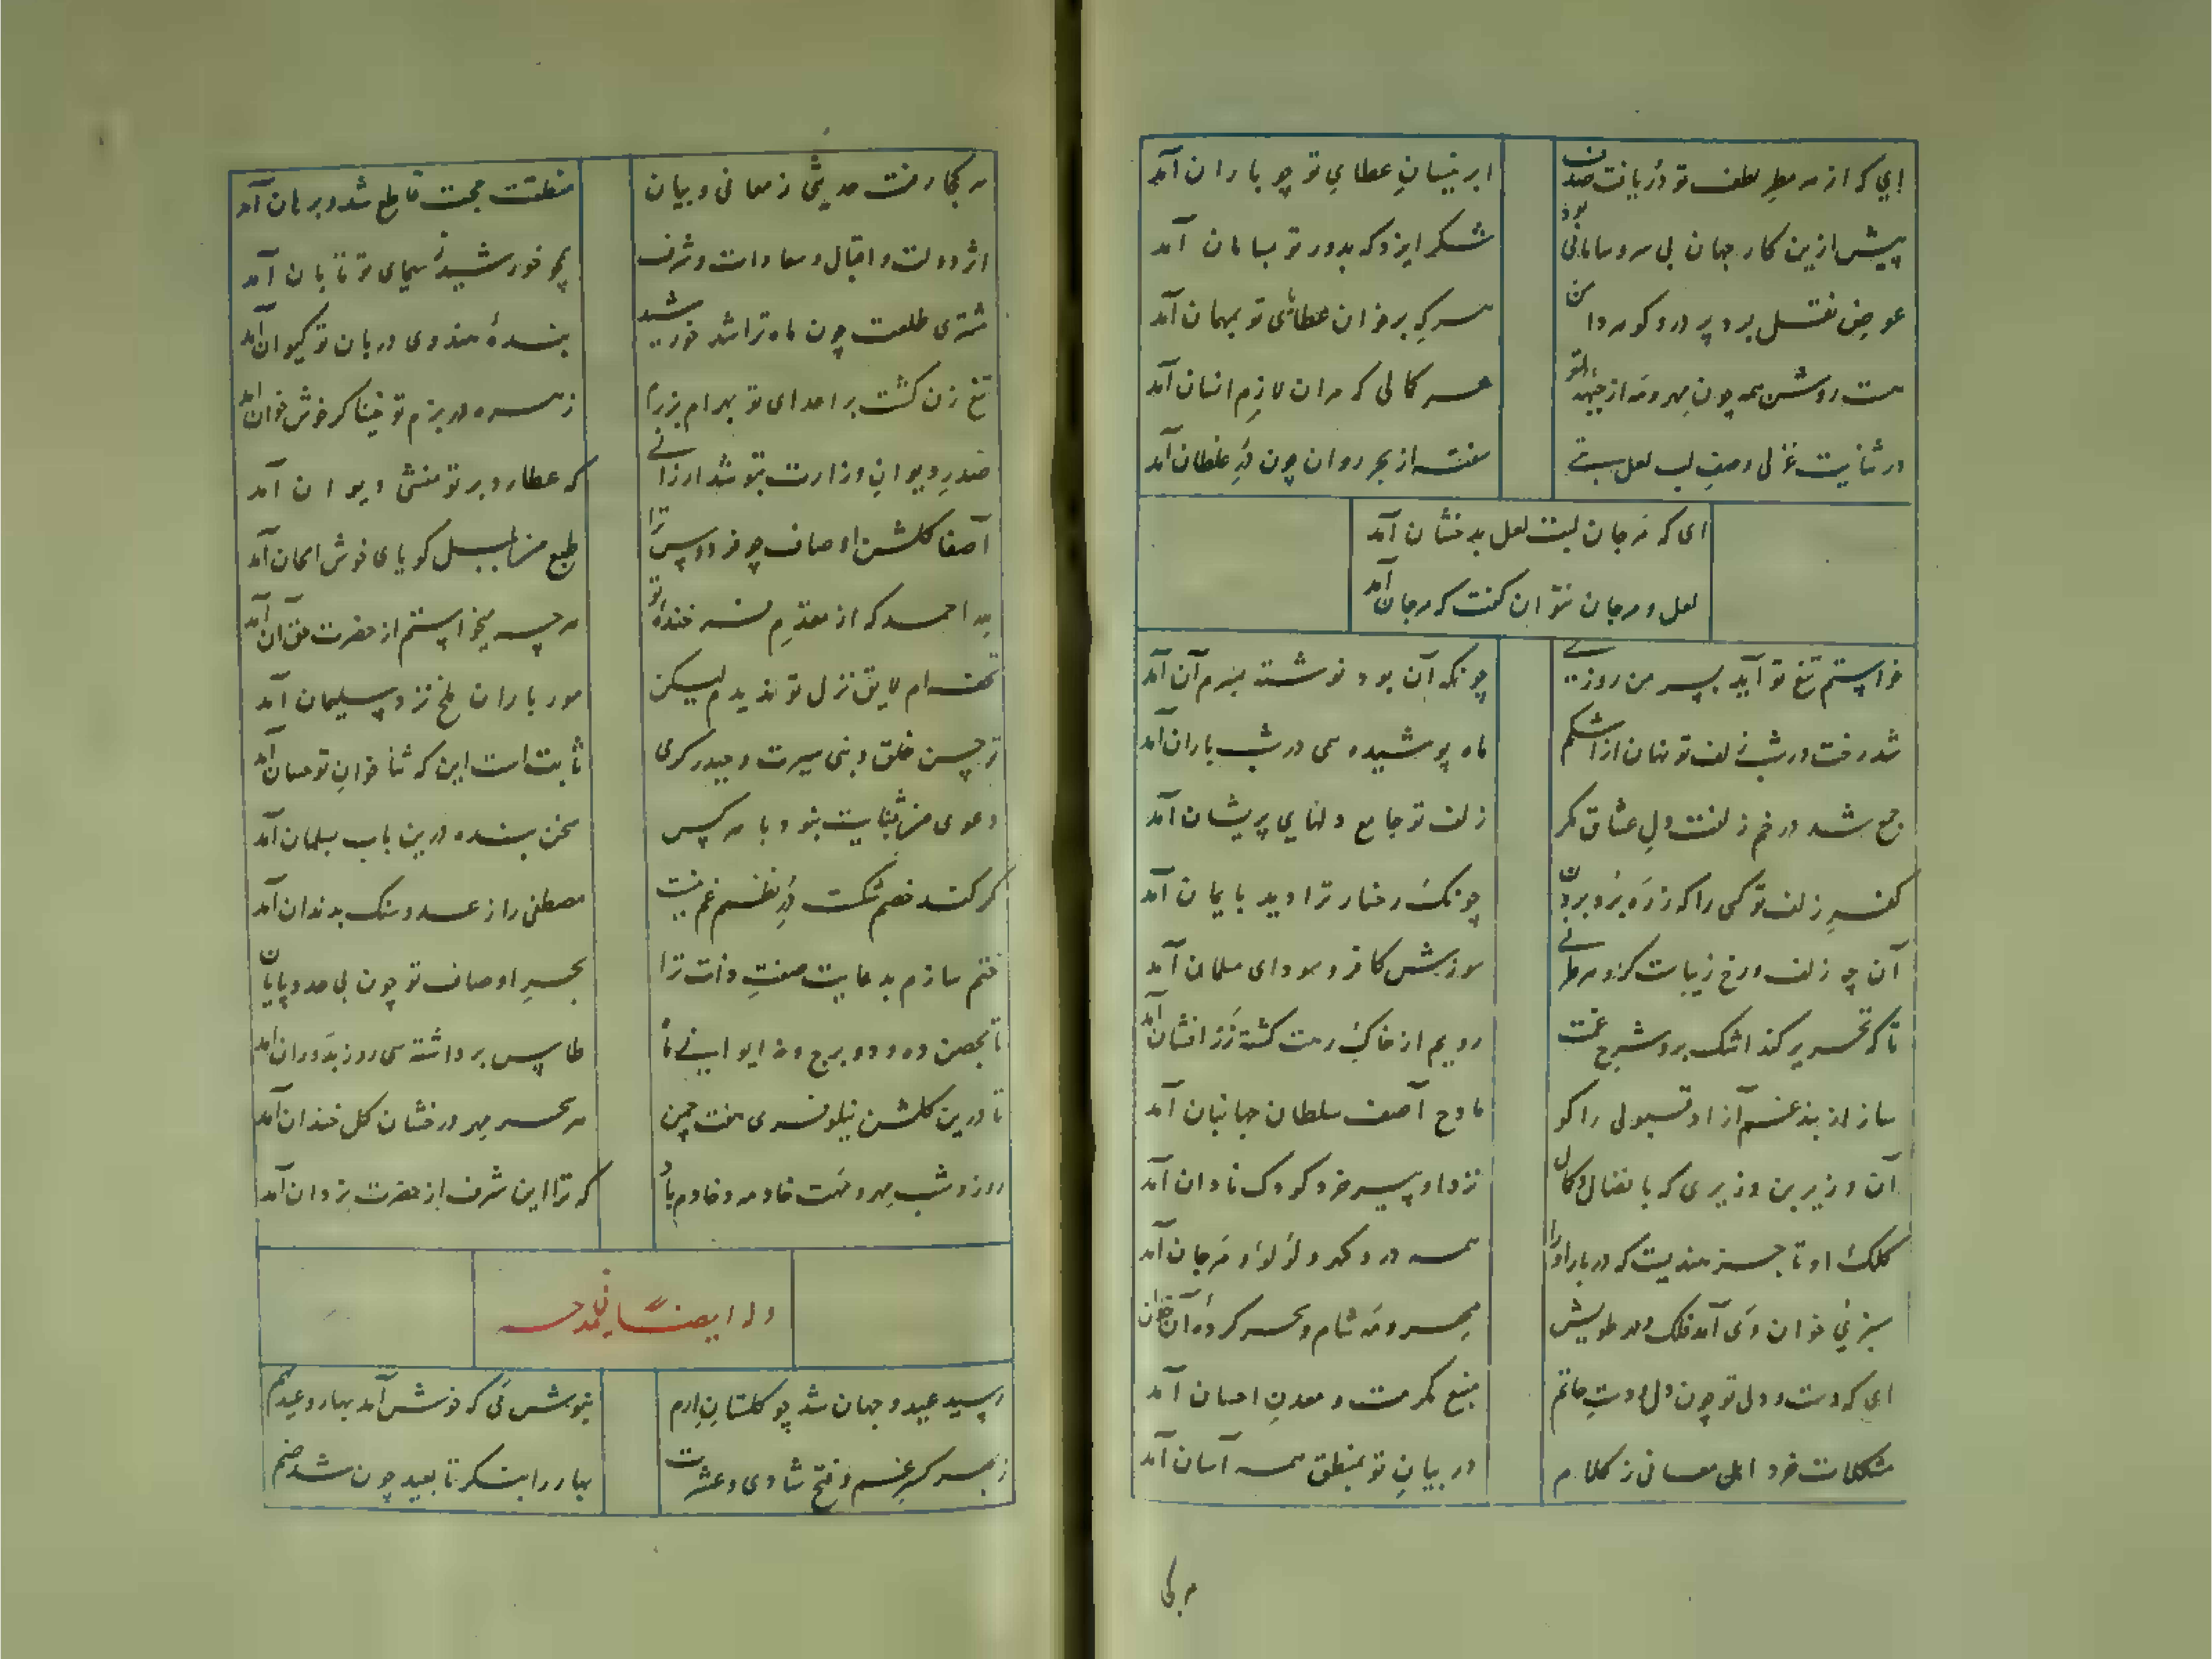 ای که از هر مطر لطف تو در یافت صدف
ابر نیسان عطای تو چو باران آمد
پیش ازین کار جهان بی سر و سامانی بود
شکر ایزد که بدور تو بسامان آمد
عوض نقل برد پر در و گوهر دامن
هر که بر خوان عطای تو بمهمان آمد
هست روشن همه چون مهر و مه از جبهه تو
هر کمالی که مران لازم انسان آمد
در ثنایت غزلی وصف لب لعل بتی
سفته از بحر روان چون در غلطان آمد
ای که مرجان لبت لعل بدخشان آمد
لعل و مرجان نتوان گفت که مرجان آمد
خواستم تیغ تو آید بسر من روزی
چونکه آن بود نوشته بسرم آن آمد
شد رخت در شب زلف تو نهان از اشکم
ماه پوشیده سی در شب باران آمد
جمع شد در خم زلفت دل عشاق مگر
زلف تو جامع دلهای پریشان آمد
کفر زلف تو کسی را که ز ره برد برون
چونکه رخسار ترا دید بایمان آمد
آن چه زلف و رخ زیباست کزو هر طرفی
سوزش کافر و سودای مسلمان آمد
تا که تحریر کند اشک برو شرح غمت
رویم از خاک رهت گشته زرافشان آمد
ساز از بند غم آزاد قبولی را کو
مادح آصف سلطان جهانبان آمد
آن وزیر بن وزیری که با فضال و کمال
نزد او پیر خرد کودک نادان آمد
کلک او تاجر هندیست که دربار او را
همه در و گهر و لؤلؤ و مرجان آمد
سبزی خوان وی آمد فلک و مد طولیش
مهر و مه شام و سحر کرده آن خوان آمد
ای که دست و دل تو چون دل و دست حاتم
منبع مکرمت و معدن احسان آمد
مشکلات خرد اهل معانی ز کلام
در بیان تو بمنطق همه آسان آمد
هر کجا
هر کجا رفت حدیثی ز معانی و بیان
منطقت حجت قاطع شد و برهان آمد
اثر دولت و اقبال و سعادات و شرف
همچو خورشید ز سیمای تو تابان آمد
مشتری طلعت چون ماه ترا شد خورشید
بنده هندوی دربان تو کیوان آمد
تیغ زن گشت بر اعدای تو بهرام برزم
زهره در بزم تو خنیاگر خوش خوان آمد
صدر دیوان وزارت بتو شد ارزانی
که عطارد بر تو منشی دیوان آمد
آصفا گلشن اوصاف چو فردوس ترا
طبع من بلبل گویای خوش الحان آمد
لله احمد که از مقدم فرخنده تو
هر چه میخواستم از حضرت حق آن آمد
تحفه ام لایق نزل تو ندیدم لیکن
مور باران ملخ نزد سلیمان آمد
تو حسن خلق و نبی سیرت و حیدر کرمی
ثابت است این که ثنا خوان تو حسان آمد
دعوی من بثنایت بنود با هر کس
سخن بنده درین باب بسلمان آمد
گر کند خصم شکست در نظمم غم نیست
مصطفی را ز عدو سنگ بدندان آمد
ختم سازم بدعایت صفت ذات ترا
بحر اوصاف تو چون بی حد و پایان آمد
تا بحصن ده و دو برج و نه ایوانی ما
طاس برداشته سی روز بدوران آمد
تا درین گلشن نیلوفری هفت چمن
هر سحر مهر درخشان گل خندان آمد
روز و شب مهر و مهت خادمه و خادم باد
که ترا این شرف از حضرت یزدان آمد
وله ایضا فی مدحه
رسید عید و جهان شد چو گلستان ارم
بنوش می که خوش آمد بهار و عید بهم
ز بهر کسر غم و فتح شادی و عشرت
بهار را بنگر تا بعید چون شد ضم